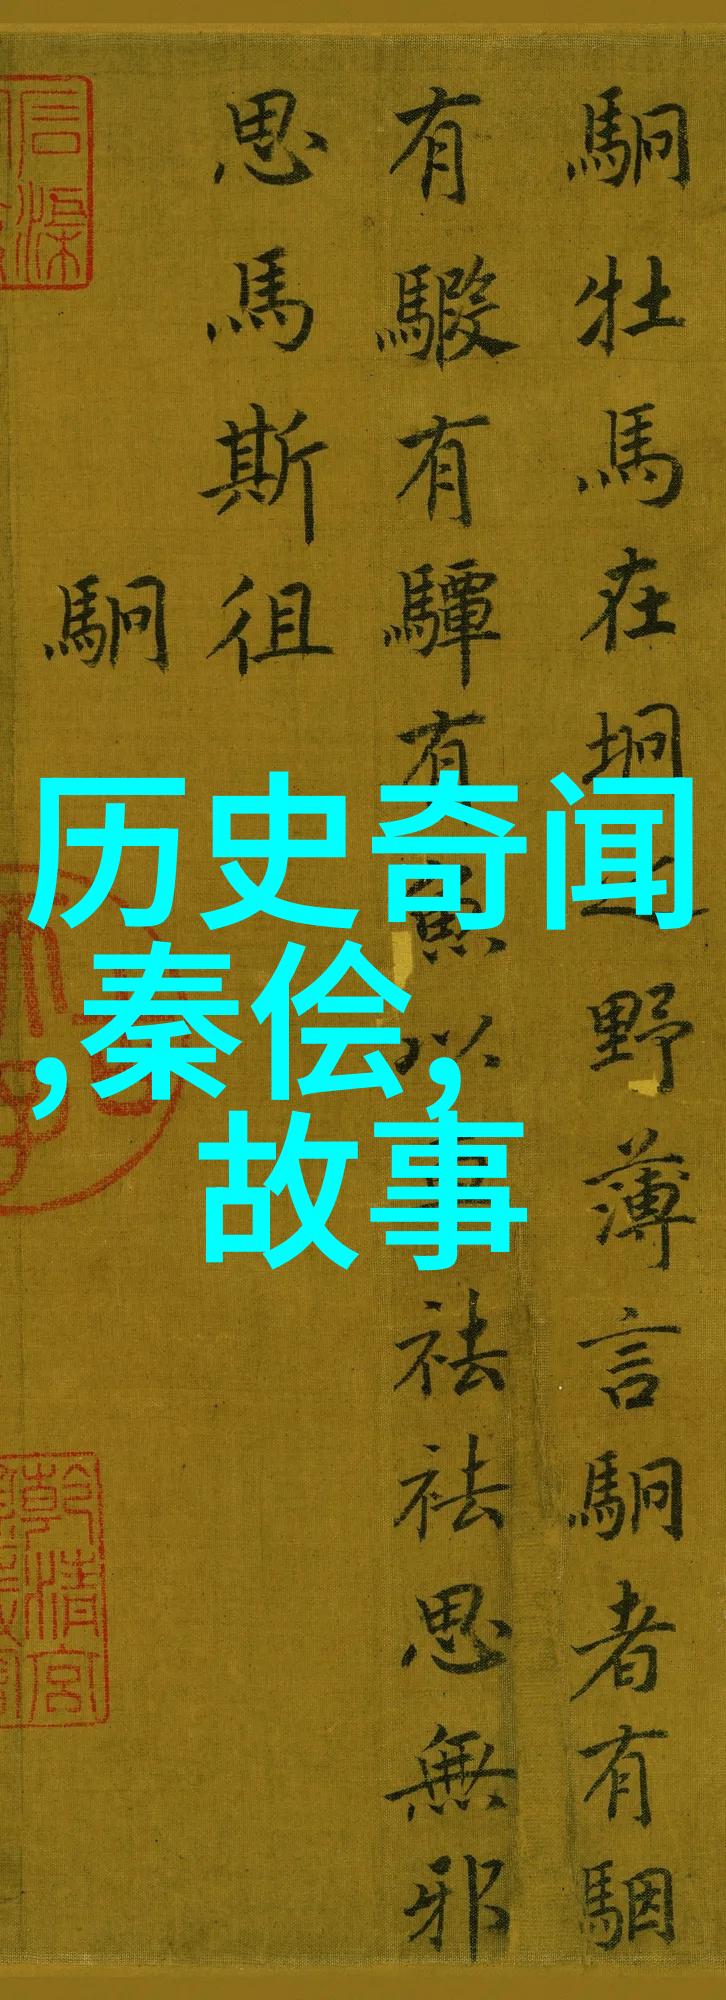 駉牡馬在坰之野薄言駉者有駰
有騢有驔有魚以車祛祛思無邪
思馬斯徂
駉
历史奇闻
,秦侩,
故事
乾清宮